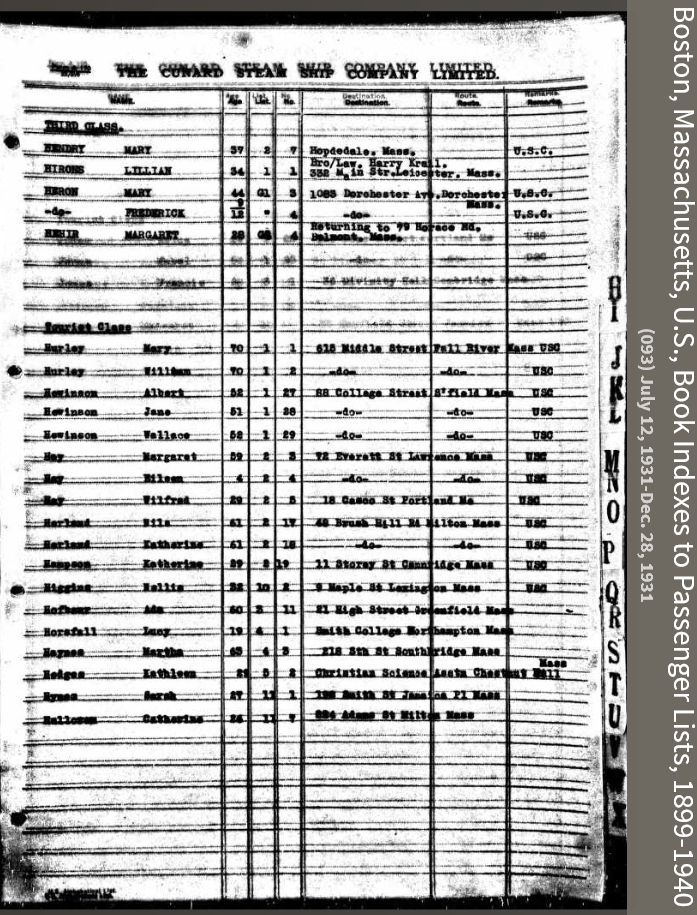 THE CUNARD STEAM SHIP COMPANY LIMITED.
NAME. Age. List. No. Destination. Route. Remarks.
THIRD CLASS.
HENDRY MARY 37 2 7 Hopdedale. Mass. U.S.C.
Bro/Law. Harry Krall.
HIRONS LILLIAN 34 1 1 332 Main Str.Leicester. Mass.
HERON MARY 44 G1 3 1083 Dorchester Ave,Dorchester U.S.C.
Mass.
-do- FREDERICK 9/12 " 4 -do- U.S.C.
Returning to 79 Horace Rd.
HEHIR MARGARET 28 4 Belmont. Mass. USC
USC
Francis Divinity Hall Cambridge Mass
Tourist Class
Hurley Mary 70 1 1 615 Middle Street Fall River Mass USC
Hurley William 70 1 2 -do- -do- USC
Hewinson Albert 52 1 27 88 College Street S'field Mass USC
Hewinson Jane 51 1 28 -do- -do- USC
Hewinson Wallace 52 1 29 -do- -do- USC
Hay Margaret 59 2 3 72 Everett St Lawrence Mass USC
Hay Eileen 4 2 4 -do- -do- USC
Hay Wilfred 29 2 5 18 Casco St Portland Me USC
Harland Nils 61 2 17 48 Brush Hill Rd Milton Mass USC
Harland Katherine 61 2 18 -do- -do- USC
Hampson Katherine 29 2 19 11 Storey St Cambridge Mass USC
Higgins Hollis 32 10 2 9 Maple St Lexington Mass USC
Hofbaur Ada 60 3 11 21 High Street Greenfield Mass
Horsfall Lucy 19 4 1 Smith College Northampton Mass
Haynes Martha 63 4 3 218 8th St Southbridge Mass
Mass
Hodges Kathleen 25 5 2 Christian Science Assts Chestnut Hill
Hynes Sarah 27 11 1 Smith St Jamaica Pl Mass
Halloson Catherine 26 11 7 224 Adams St Milton Mass
H
I
J
K
L
M
N
O
P
Q
R
S
T
U
V
W
X
Boston, Massachusetts, U.S., Book Indexes to Passenger Lists, 1899-1940
(093) July 12, 1931-Dec. 28, 1931